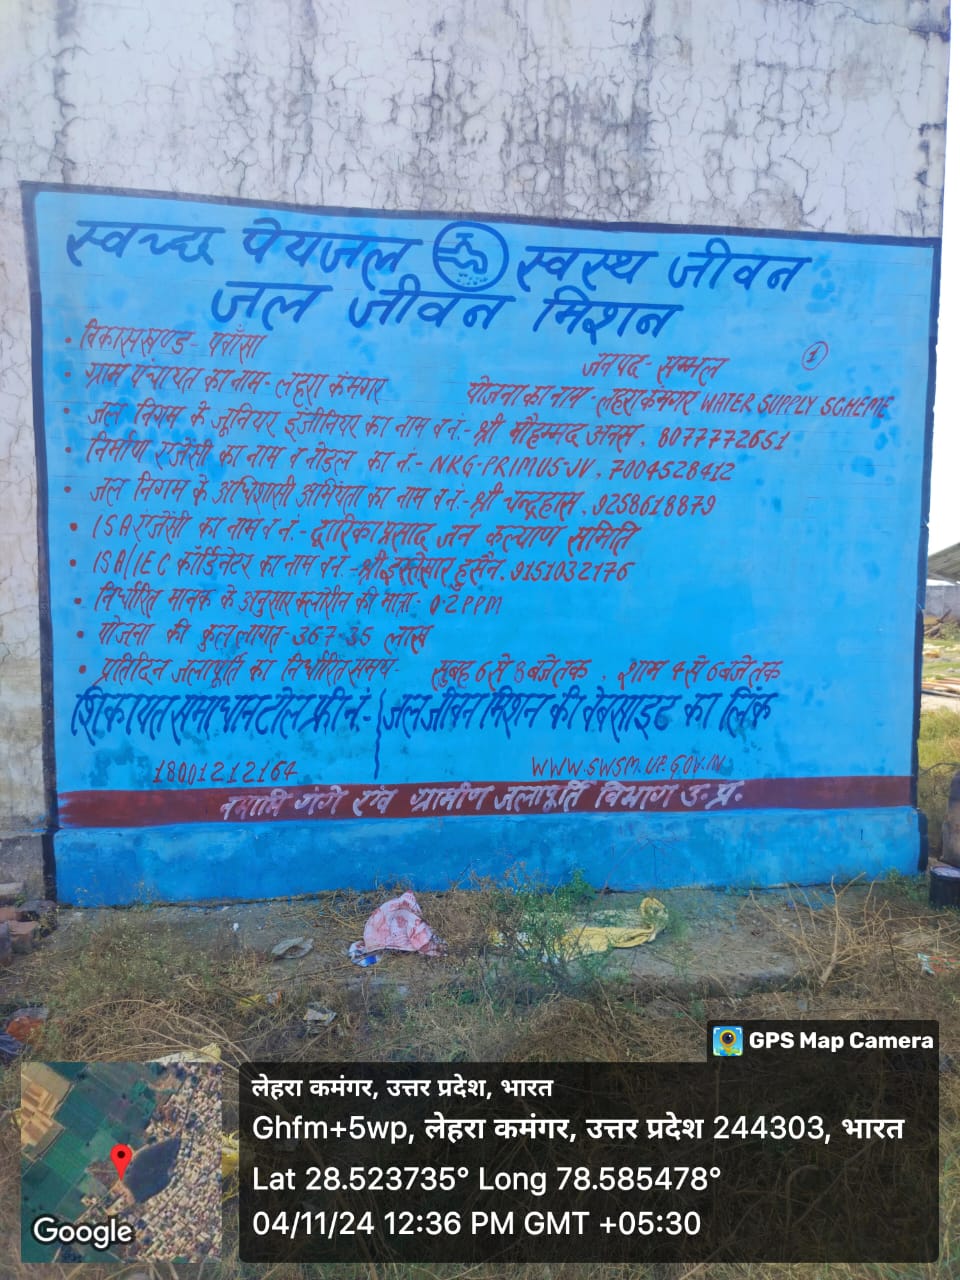 स्वच्छ पेयजल स्वस्थ जीवन
जल जीवन मिशन
• विकासखण्ड- पवाँसा
जनपद- सम्भल 1
• ग्राम पंचायत का नाम- लहरा कंमगर
योजना का नाम- लहरा कंमगर WATER SUPPLY SCHEME
• जल निगम के जूनियर इंजीनियर का नाम व नं.- श्री मौहम्मद अनस, 8077772651
• निर्माण एजेंसी का नाम व नोडल का नं.- NKG-PRIMUS-JV, 7004528412
• जल निगम के अधिशासी अभियंता का नाम व नं.- श्री चन्द्रहास, 9258618879
• ISA एजेंसी का नाम व नं.- द्वारिका प्रसाद जन कल्याण समिति
• ISA/IEC कॉर्डिनेटर का नाम व नं.- श्री इस्तेसार हुसैन, 9151032176
• निर्धारित मानक के अनुसार क्लोरीन की मात्रा- 0.2 PPM
• योजना की कुल लागत- 367.35 लाख
• प्रतिदिन जलापूर्ति का निर्धारित समय- सुबह 6 से 8 बजे तक, शाम 4 से 6 बजे तक
शिकायत समाधान टोल फ्री नं.- जल जीवन मिशन की वेबसाइट का लिंक
18001212164 WWW.SWSM.UP.GOV.IN
नमामि गंगे एवं ग्रामीण जलापूर्ति विभाग उ.प्र.
GPS Map Camera
लेहरा कमंगर, उत्तर प्रदेश, भारत
Ghfm+5wp, लेहरा कमंगर, उत्तर प्रदेश 244303, भारत
Lat 28.523735° Long 78.585478°
04/11/24 12:36 PM GMT +05:30
Google